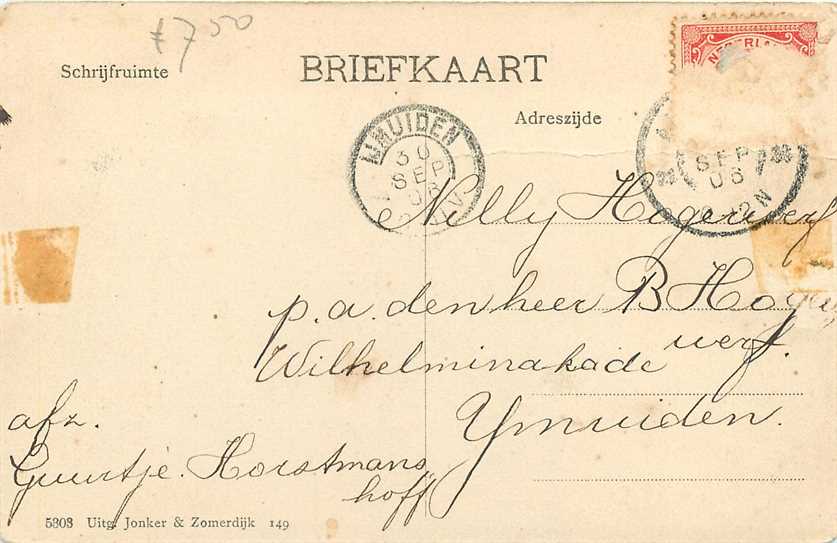 7 50
Schrijfruimte
BRIEFKAART
Adreszijde
NEDERLAND
IJMUIDEN
30
SEP
06
SEP
06
12 N
Nelly Hogerwerf
p.a. den heer B Hoger
werf.
Wilhelminakade
Ymuiden.
afz.
Guurtje Horstmans
hoff
5303 Uitg. Jonker & Zomerdijk 149